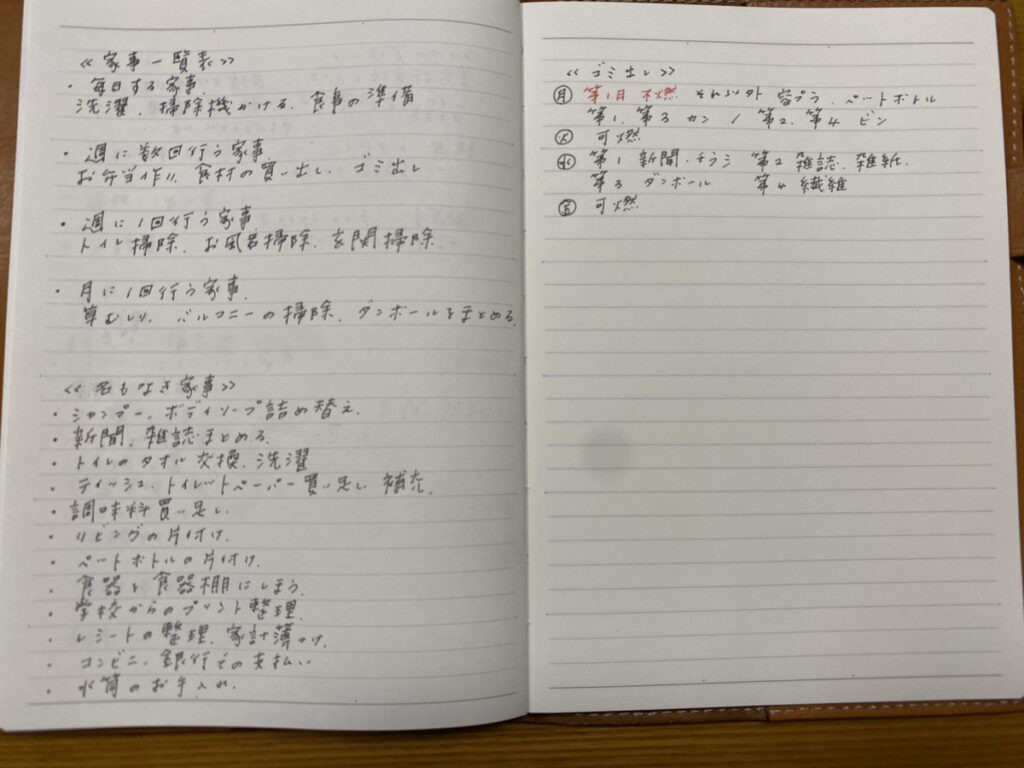 ≪家事一覧表≫
・毎日する家事
洗濯、掃除機かける、食事の準備
・週に数回行う家事
お弁当作り、食材の買い出し、ゴミ出し
・週に1回行う家事
トイレ掃除、お風呂掃除、玄関掃除
・月に1回行う家事
草むしり、バルコニーの掃除、ダンボールをまとめる
≪名もなき家事≫
・シャンプー、ボディソープ詰め替え
・新聞、雑誌まとめる
・トイレのタオル交換、洗濯
・ティッシュ、トイレットペーパー買い足し 補充
・調味料買い足し
・リビングの片付け
・ペットボトルの片付け
・食器を食器棚にしまう
・学校からのプリント整理
・レシートの整理、家計簿つけ
・コンビニ、銀行での支払い
・水筒のお手入れ
≪ゴミ出し≫
㊊ 第1日 不燃 それ以外 皆プラ、ペットボトル
第1、第3 カン / 第2、第4 ビン
㊋ 可燃
㊌ 第1 新聞・チラシ 第2 雑誌、雑紙
第3 ダンボール 第4 繊維
㊎ 可燃